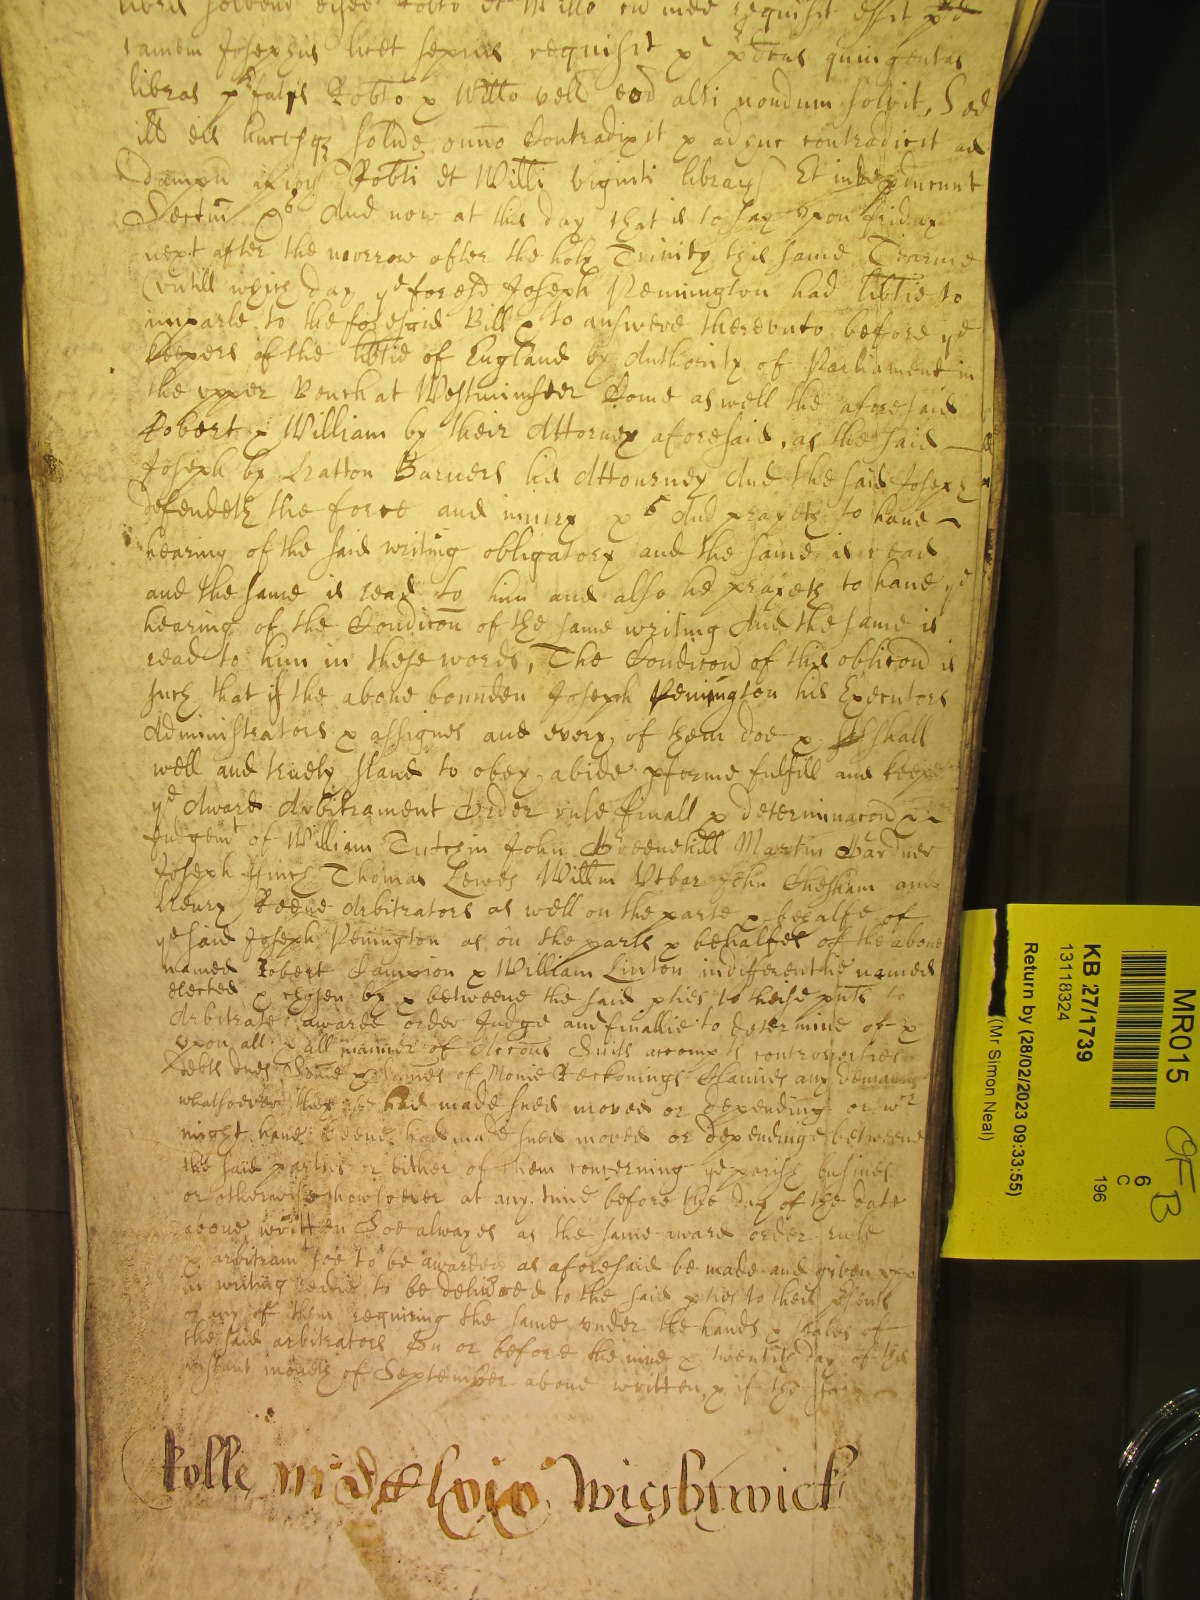 libris solvend eisdem Robto et Willo cum inde requisit esset pred
tamen Josephus licet sepius requisit &c pdcas quingentas
libras pfatis Robto & Willo vell eod alti nondum solvit, Sed
ill eis hucusqz solve omio Contradixit & adhuc contradicit ad
Dampnu ipsoz Robti et Willi viginti librarz Et inde pducunt
Sectm &c And now at this day that is to say upon friday
next after the morrow after the holy Trinity this same Tearme
(untill which day ye foresd Joseph Penington had libtie to
imparle to the foresaid Bill & to answere thereunto before ye
keepers of the libtie of England by Authority of Parliament in
the upper Bench at Westminster Come as well the aforesaid
Robert & William by their Attorney aforesaid, as the said
Joseph by Hatton Barners his Attourney And the said Joseph
Defendeth the force and iniury &c And prayeth to have
hearing of the said writing obligatory and the same is read
and the same is read to him and also he prayeth to have ye
hearing of the Condicon of the same writing And the same is
read to him in these words, The Condicon of this obligcon is
such that if the above bounden Joseph Penington his Executors
Administrators & assignes and every of them doe & shall
well and truely stand to obey abide pforme fulfill and keepe
ye Award Arbitrament Order rule finall & determinacon &
Judgemt of William Tutchin John Greenehill Martin Gardner
Joseph Thomas Lewes Willm John Chesham and
Henry Keene Arbitrators as well on the parte & behalfe of
ye said Joseph Penington as on the parts & behalfes of the above
named Robert Campion & William Linton indifferentlie named
elected & chosen by & betweene the said pties to theise pnts to
Arbitrate awarde order Judge and finallie to determine of &
upon all & all manner of Accons Suits accompts controversies
debts dues Some & Somes of Monie Reckonings Claimes any demands
whatsoever they be had made sued moved or depending or wch
might have beene had made sued moved or dependinge betweene
the said parties or either of them concerning ye parish business
or otherwise howsoever at any time before the day of the date
above written Soe alwayes as the same award order rule
& arbitramt soe to be awarded as aforesaid be made and given upp
in writing readie to be delived to the said pties to their psents
or any of them requiring the same under the hands & seales of
the said arbitrators On or before the nine & twentith day of this
instant moneth of September above written & if the said
Rolle mdclvio Wightwick
MR015
KB 27/1739
13118324
Return by (28/02/2023 09:33:55)
(Mr Simon Neal)
6
C
196
OF B